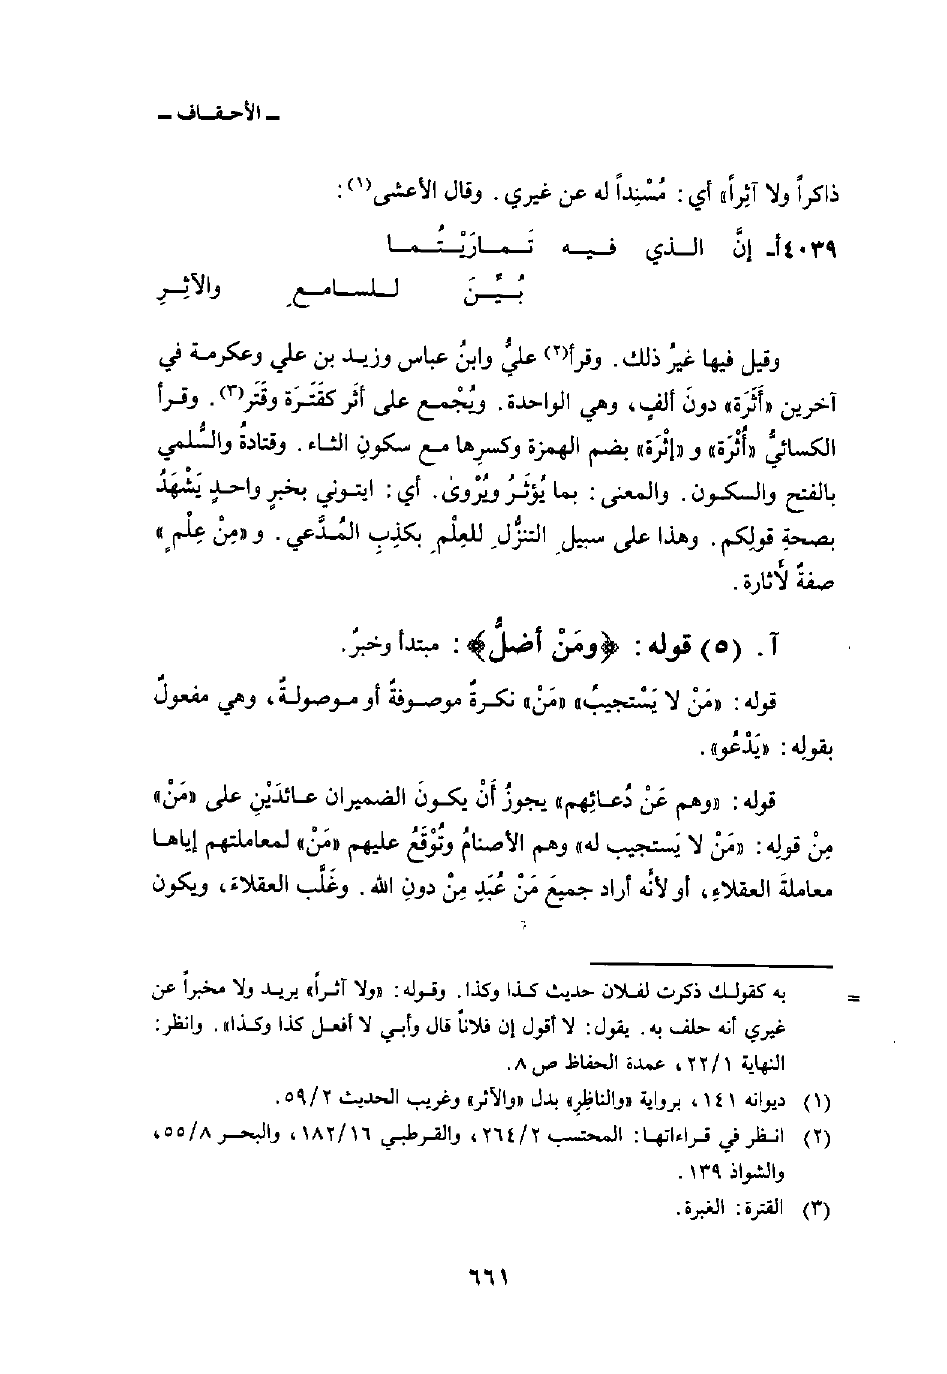 ـ الأحـقـاف ـ
ذاكراً ولا آثِراً» أي: مُسْنِداً له عن غيري. وقال الأعشى(١):
٤٠٣٩أـ إنَّ الـذي فـيـه تَـمـارَيْـتُـمـا
بُـيِّـنَ لـلـسـامـعِ والآثِـرِ
وقيل فيها غيرُ ذلك. وقرأ(٢) عليٌّ وابنُ عباس وزيـد بن علي وعكرمـة في
آخرين «أَثَرَة» دونَ ألفٍ، وهي الواحدة. ويُجْمـع على أَثَر كقَتَـرَة وقَتَر(٣). وقـرأ
الكسائيُّ «أُثْرَة» و «إِثْرَة» بضم الهمزة وكسرِها مـع سكونِ الثـاء. وقتادةُ والسُّلمي
بالفتح والسكـون. والمعنى: بما يُؤْثَـرُ ويُرْوىٰ. أي: ايتـوني بخبرٍ واحـدٍ يَشْهَدُ
بصحةِ قولِكم. وهـذا على سبيـلِ التنزُّلِ للعِلْمِ بكَذِبِ المُدَّعي. و «مِنْ عِلْمٍ»
صفةٌ لأَثارة.
آ. (٥) قوله: ﴿ومَنْ أَضَلُّ﴾: مبتدأ وخبرٌ.
قوله: «مَنْ لا يَسْتجيبُ» «مَنْ» نكـرةٌ موصـوفةٌ أو مـوصولـةٌ، وهي مفعولٌ
بقولِه: «يَدْعُو».
قوله: «وهم عَنْ دُعـائِهم» يجوزُ أَنْ يكـونَ الضميران عـائدَيْنِ على «مَنْ»
مِنْ قولِه: «مَنْ لا يَستجيب له» وهم الأصنامُ وتُوْقَعُ عليهم «مَنْ» لمعاملتهم إياهـا
معاملةَ العقلاءِ، أو لأنَّه أراد جميعَ مَنْ عُبَدِ مِنْ دونِ الله. وغَلَّب العقلاءَ، ويكون
= به كقولـك ذكرت لفـلان حديث كـذا وكذا. وقـوله: «ولا آثـراً» يريـد ولا مخبراً عن
غيري أنه حلف به. يقول: لا أقول إن فلاناً قال وأبي لا أفعـل كذا وكـذا». وانظر:
النهاية ٢٢/١، عمدة الحفاظ ص ٨.
(١) ديوانه ١٤١، برواية «والناظِرِ» بدل «والآثر» وغريب الحديث ٥٩/٢.
(٢) انـظر في قـراءاتهـا: المحتسب ٢٦٤/٢، والقـرطبي ١٨٢/١٦، والبحـر ٥٥/٨،
والشواذ ١٣٩.
(٣) القترة: الغبرة.
٦٦١